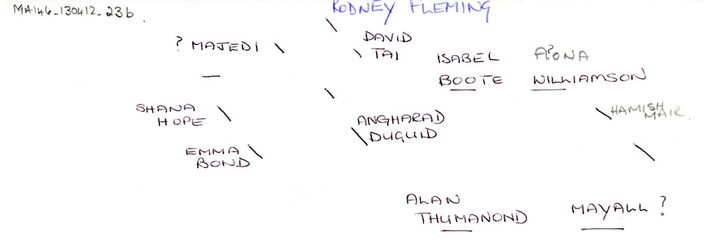 MA146_130412_23b.
RODNEY FLEMING
DAVID
TAI
? MAJEDI
ISABEL
BOOTE
FIONA
WILLIAMSON
SHANA
HOPE
ANGHARAD
DUGUID
HAMISH
MAIR.
EMMA
BOND
ALAN
THUMANOND
MAYALL ?